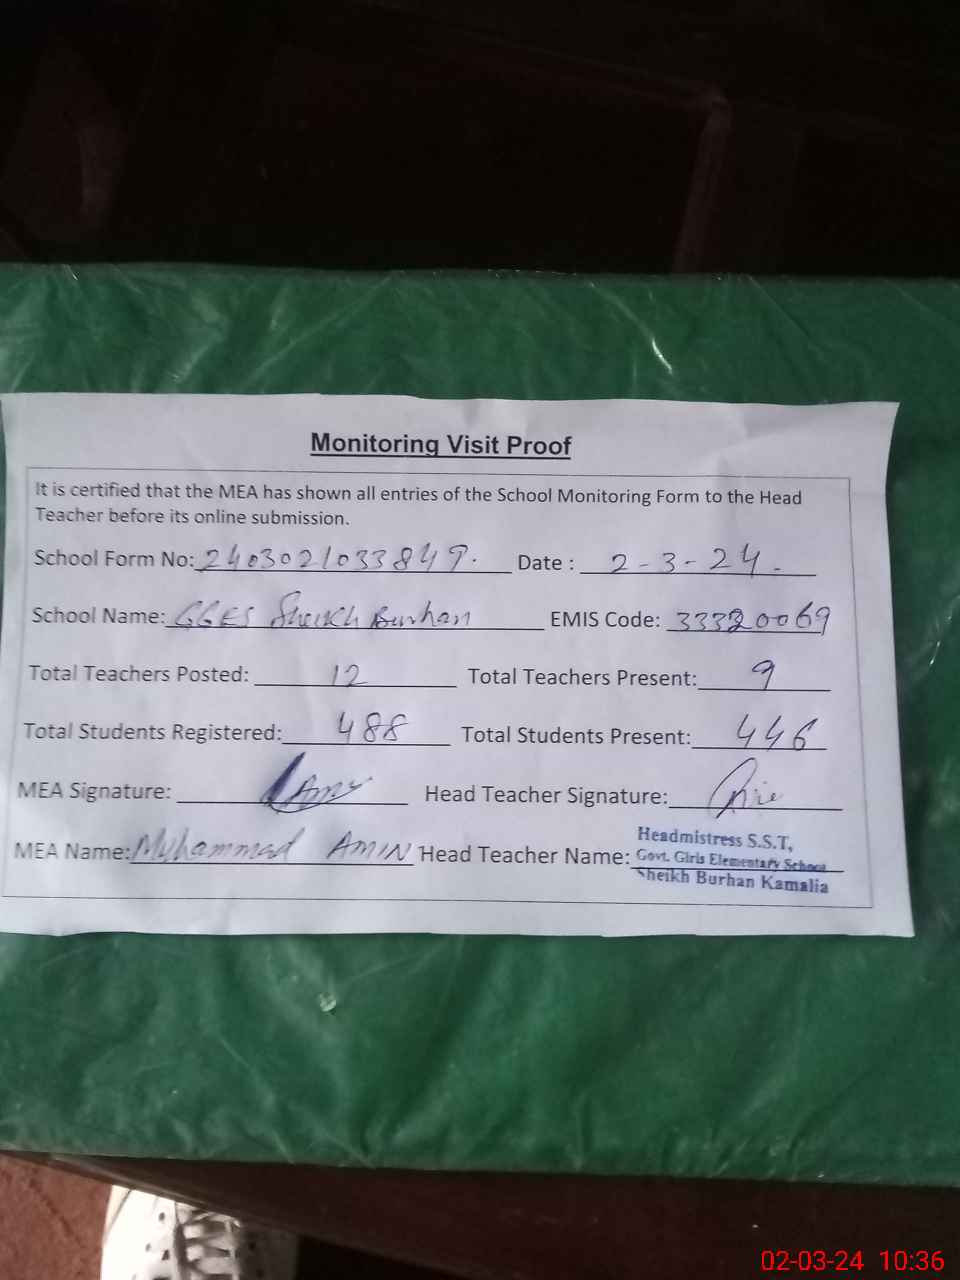 Monitoring Visit Proof
It is certified that the MEA has shown all entries of the School Monitoring Form to the Head
Teacher before its online submission.
School Form No: 2403021033849. Date : 2-3-24.
School Name: GGES Sheikh Burhan EMIS Code: 33320069
Total Teachers Posted: 12 Total Teachers Present: 9
Total Students Registered: 488 Total Students Present: 446
MEA Signature: Head Teacher Signature:
MEA Name: Muhammad AMIN Head Teacher Name:
Headmistress S.S.T,
Govt. Girls Elementary School
Sheikh Burhan Kamalia
02-03-24 10:36